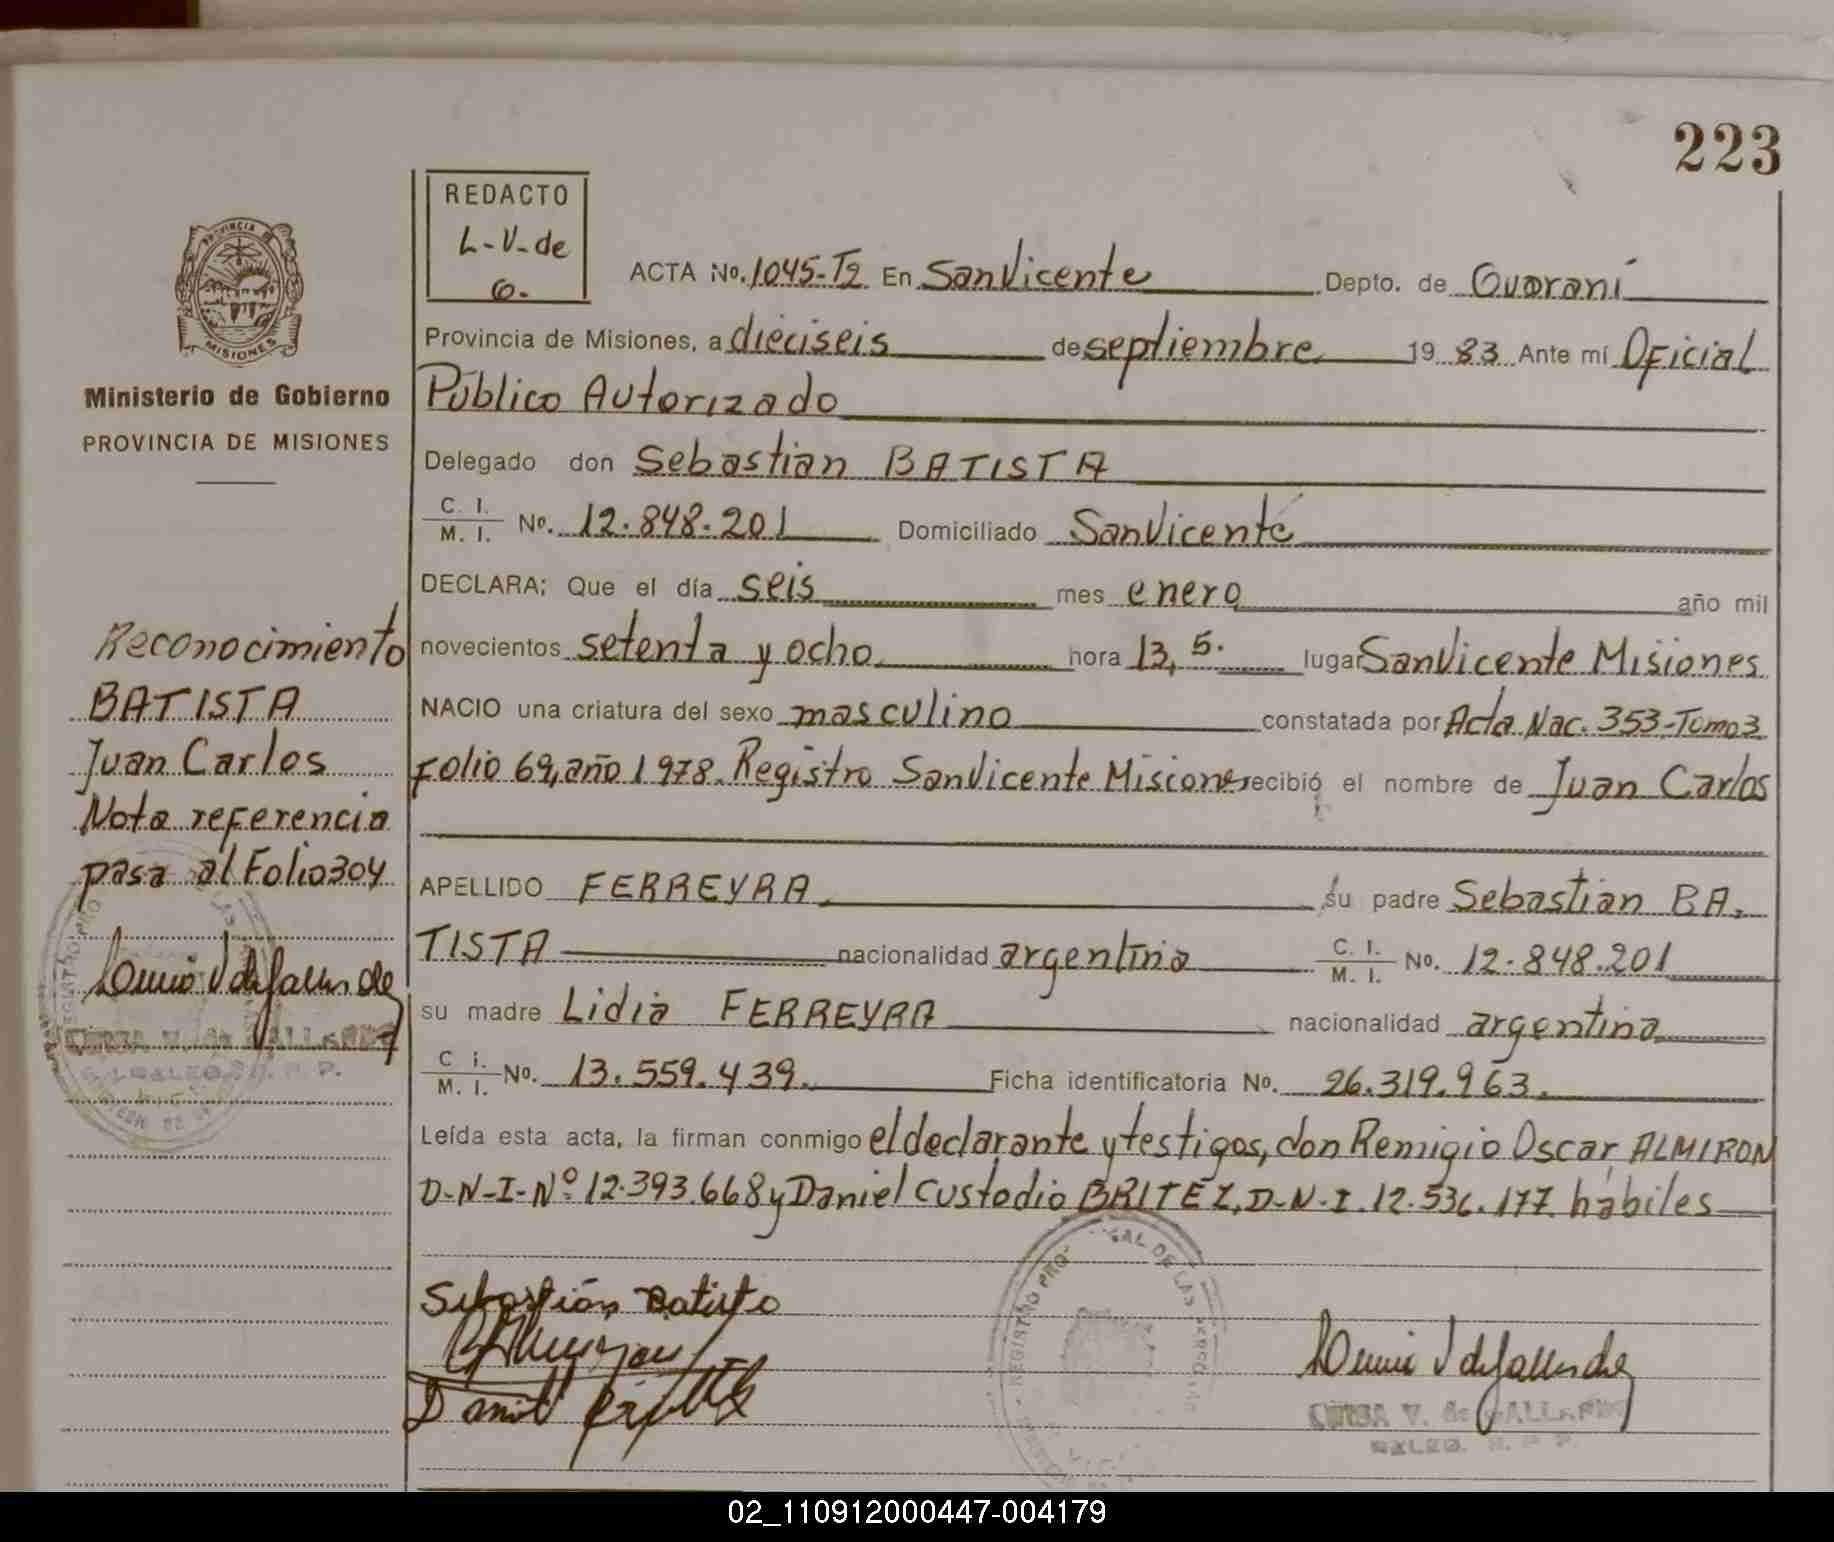 223
REDACTO
L-V-de
G.
PROVINCIA DE
MISIONES
Ministerio de Gobierno
PROVINCIA DE MISIONES
ACTA No. 1045-T2 En San Vicente Depto. de Guaraní
Provincia de Misiones, a dieciseis de septiembre 19 83 Ante mí Oficial
Público Autorizado
Delegado don Sebastian BATISTA
C. I.
M. I. No. 12.848.201 Domiciliado San Vicente
DECLARA; Que el día seis mes enero año mil
novecientos setenta y ocho hora 13,5. lugar San Vicente Misiones
NACIO una criatura del sexo masculino constatada por Acta Nac. 353-Tomo 3
Folio 69, año 1978. Registro San Vicente Misiones recibió el nombre de Juan Carlos
APELLIDO FERREYRA su padre Sebastian BA.
TISTA nacionalidad argentina C. I.
M. I. No. 12.848.201
su madre Lidia FERREYRA nacionalidad argentina
C i.
M. I. No. 13.559.439. Ficha identificatoria No. 26.319.963.
Leída esta acta, la firman conmigo el declarante y testigos, don Remigio Oscar ALMIRON
D-N-I-Nº 12.393.668 y Daniel Custodio BRITEZ, D-N-I. 12.536.177 hábiles
Sebastián Batista
Daniel
REGISTRO PRO
DE LAS
V. de GALLARDO
Reconocimiento
BATISTA
Juan Carlos
Nota referencia
pasa al Folio 304
REGISTRO PRO
LAS
V. de GALLARDO
02_110912000447-004179